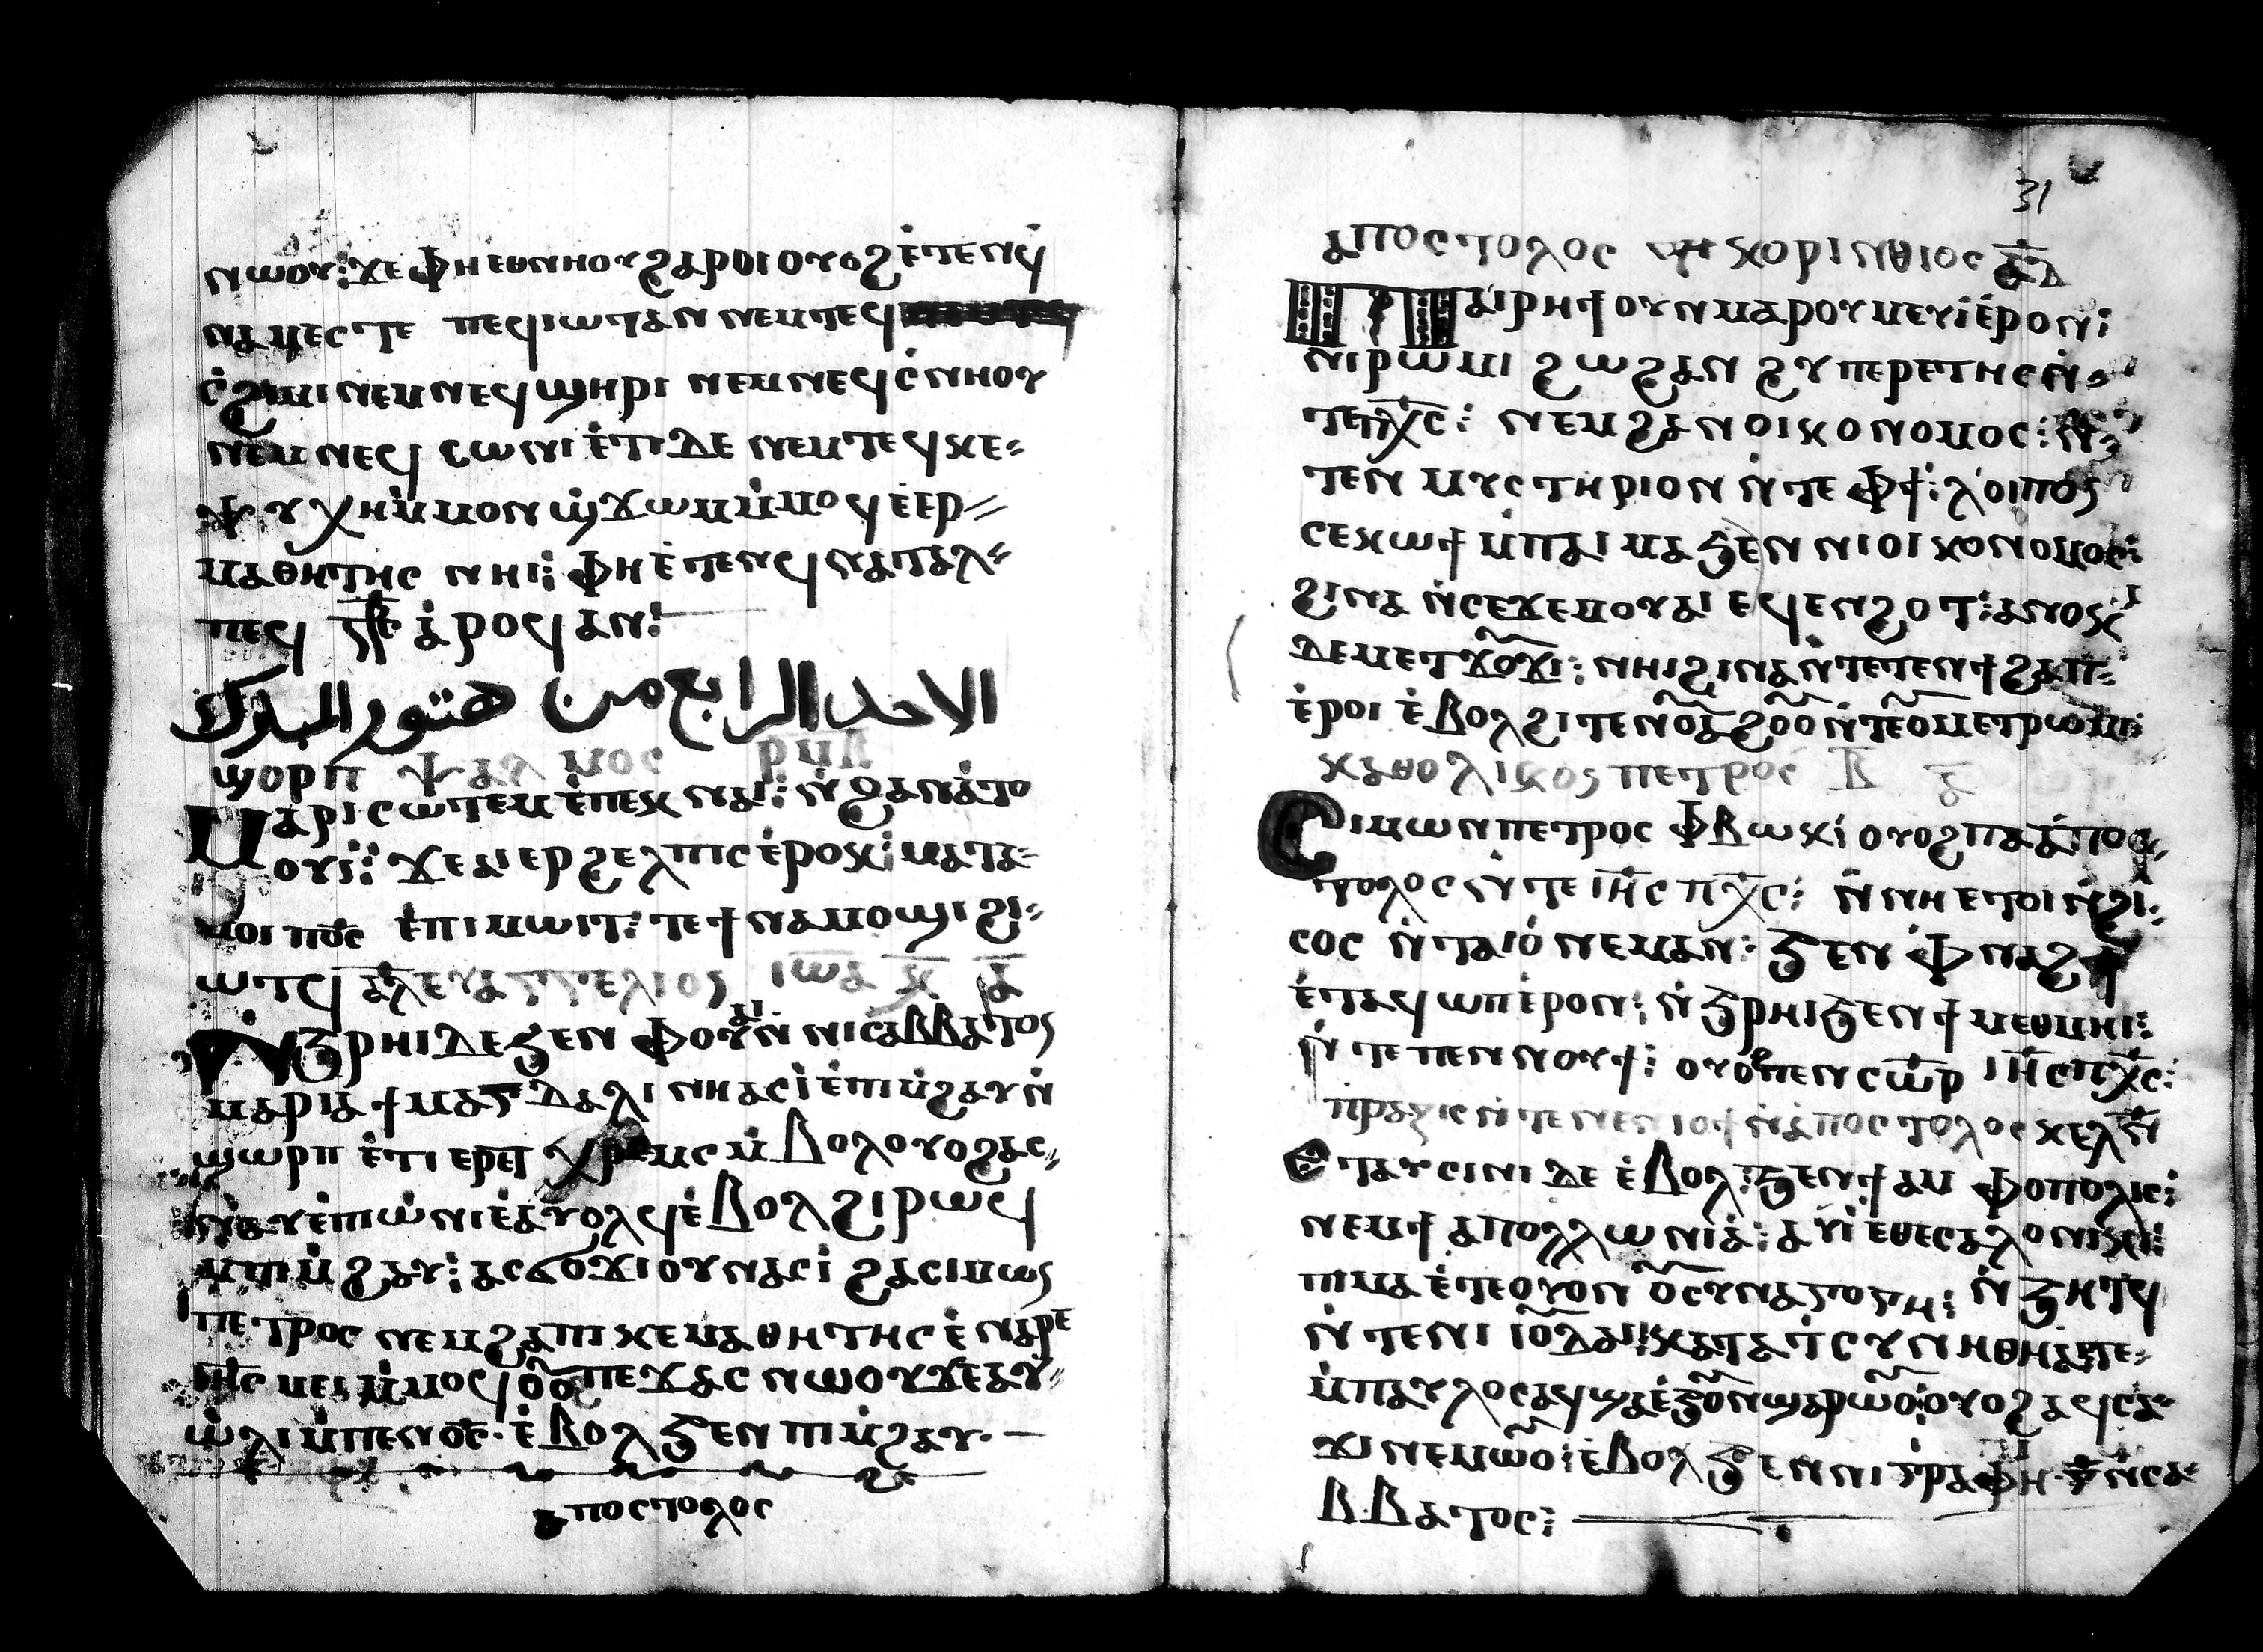 ⲛⲱⲟⲩ: ϫⲉ ⲫⲏ ⲉⲑⲛⲏⲟⲩ ϩⲁⲣⲟⲓ ⲟⲩⲟϩ ⲉ̇ⲧⲉⲛϥ
ⲛⲁⲙⲉⲥⲧⲉ ⲡⲉϥⲓⲱⲧ ⲁⲛ ⲛⲉⲙ ⲧⲉϥ
ⲥ̇ϩⲓⲙⲓ ⲛⲉⲙ ⲛⲉϥϣⲏⲣⲓ ⲛⲉⲙ ⲛⲉϥⲥ̇ⲛⲏⲟⲩ
ⲛⲉⲙ ⲛⲉϥ ⲥⲱⲛⲓ ⲉ̇ⲧⲓ ⲇⲉ ⲛⲉⲙ ⲧⲉϥⲕⲉ⸗
ⲯⲩⲭⲏ ⲙ̇ⲙⲟⲛ ϣ̇ϫⲱⲙ ⲙ̇ⲙⲟϥ ⲉ̇ⲉⲣ⸗
ⲙⲁⲑⲏⲧⲏⲥ ⲛⲏⲓ: ⲫⲏ ⲉ̇ⲧⲉⲛϥⲛⲁⲧⲁⲗ⸗
ⲡⲉϥ ⲁ̇ⲣⲟϥ ⲁⲛ:
الاحد الرابع من هتور المبارك
ϣⲟⲣⲡ ⲯⲁⲗⲙⲟⲥ ⲣⲙⲃ
ⲙⲁⲣⲓⲥⲱⲧⲉⲙ ⲉ̇ⲡⲉⲕ ⲛⲁⲓ: ⲛ̇ϩⲁⲛⲁ̇ⲧⲟ
ⲟⲩⲓ̇: ϫⲉ ⲁⲓⲉⲣϩⲉⲗⲡⲓⲥ ⲉ̇ⲣⲟⲕ: ⲙⲁⲧⲁ⸗
ⲙⲟⲓ ⲡⲟ̅ⲥ̅ ⲉ̇ⲡⲓⲙⲱⲓⲧ: ⲧⲉϯⲛⲁⲙⲟϣⲓ ϩⲓ⸗
ⲱⲧϥ ⲁ̅ⲗ̅ ⲉⲩⲁⲅⲅⲉⲗⲓⲟⲥ ⲓⲱⲁ ⲕ̅ ⲁ̅
ⲛ̇ϧⲣⲏⲓ ⲇⲉ ϧⲉⲛ ⲫⲟⲩⲁⲓ ⲛ̇ ⲛⲓⲥⲁⲃⲃⲁⲧⲟⲥ
ⲙⲁⲣⲓⲁ ϯⲙⲁⲅⲇⲁⲗⲓⲛⲏ ⲁⲥⲓ̇ ⲉ̇ⲡⲓⲙ̇ϩⲁⲩ ⲛ̇
ϣⲱⲣⲡ ⲉ̇ⲧⲓ ⲉⲣⲉⲡ ⲭⲣⲉⲙⲥ ⲙ̇ⲃⲟⲗ ⲟⲩⲟϩ ⲁⲥ⸗
ⲛⲁⲩ ⲉ̇ⲡⲓⲱ̇ⲛⲓ ⲉ̇ⲁⲩⲟⲗϥ ⲉ̇ⲃⲟⲗ ϩⲓⲣⲱϥ
ⲙ̇ⲡⲓⲙ̇ϩⲁⲩ: ⲁⲥϭⲟϫⲓ ⲟⲩⲛ ⲁⲥⲓ̇ ϩⲁ ⲥⲓⲙⲱⲥ
ⲡⲉⲧⲣⲟⲥ ⲛⲉⲙ ϩⲁ ⲡⲓⲕⲉⲙⲁⲑⲏⲧⲏⲥ ⲉ̇ⲛⲁⲣⲉ
ⲓⲏ̅ⲥ̅ ⲙⲉⲓ ⲙ̇ⲙⲟϥ ⲟⲟ ⲡⲉϫⲁⲥ ⲛⲱⲟⲩ ϫⲉ ⲁⲩ⸗
ⲱ̇ⲗⲓ ⲙ̇ⲡⲉⲛⲟ̅ⲥ̅· ⲉ̇ⲃⲟⲗ ϧⲉⲛ ⲡⲓⲙ̇ϩⲁⲩ·
ⲁⲡⲟⲥⲧⲟⲗⲟⲥ
31
ⲁⲡⲟⲥⲧⲟⲗⲟⲥ ⲕⲟⲣⲓⲛⲑⲓⲟⲥ ⲁ̅ ⲇ
ⲡⲁⲓⲣⲏϯ ⲟⲩⲛ ⲙⲁⲣⲟⲩⲙⲉⲩⲓ̇ ⲉ̇ⲣⲟⲛ:
ⲛⲓⲣⲱⲙⲓ ϩⲱ ϩⲁⲛ ϩⲩⲡⲉⲣⲉⲧⲏⲥ ⲛ̇⸗
ⲧⲉ ⲡⲭ̅ⲥ̅: ⲛⲉⲙ ϩⲁⲛ ⲟⲓⲕⲟⲛⲟⲙⲟⲥ: ⲛ̇⸗
ⲧⲉⲛ ⲙⲩⲥⲧⲏⲣⲓⲟⲛ ⲛ̇ⲧⲉ ⲫϯ: ⲗⲟⲓⲡⲟⲥ
ⲥⲉⲕⲱϯ ⲙ̇ⲡⲁⲓⲙⲁ ϧⲉⲛ ⲛⲓⲟⲓⲕⲟⲛⲟⲙⲟⲥ:
ϩⲓⲛⲁ ⲛ̇ⲥⲉϫⲉⲙ ⲟⲩⲁⲓ ⲉϥⲉⲛϩⲟⲧ: ⲁⲛⲟⲕ
ⲇⲉ ⲙⲉⲧⲕⲟϫⲓ: ⲛⲏⲓ ϩⲓⲛⲁ ⲛ̇ⲧⲉⲧⲉⲛϯϩⲁⲡ⸗
ⲉ̇ⲣⲟⲓ ⲉ̇ⲃⲟⲗ ϩⲓⲧⲉⲛ ⲑⲏⲛⲟⲩ ϩⲟⲟ ⲛ̇ⲧⲉ ⲟ̅ⲙⲉⲧⲣⲱⲙⲓ:
ⲕⲁⲑⲟⲗⲓⲕⲟⲥ ⲡⲉⲧⲣⲟⲥ ⲃ̅ ⲁ̅
ⲥⲓⲙⲱⲛ ⲡⲉⲧⲣⲟⲥ ⲫⲃⲱⲕⲓ ⲟⲩⲟϩ ⲡⲁⲁ̇ⲡⲟⲥ⸗
ⲧⲟⲗⲟⲥ ⲛ̇ⲧⲉ ⲓⲏ̅ⲥ̅ ⲡⲭ̅ⲥ̅: ⲛ̇ⲛⲏ ⲉⲧⲟⲓ ⲛ̇ϩⲓ⸗
ⲥⲟⲥ ⲛ̇ⲧⲁⲓⲟ̇ ⲛⲉⲙⲁⲛ: ϧⲉⲛ ⲫⲛⲁϩϯ
ⲉ̇ⲧⲁϥⲱⲡ ⲉ̇ⲣⲟⲛ: ⲛ̇ϧⲣⲏⲓ ϧⲉⲛ ϯⲙⲉⲑⲙⲏⲓ:
ⲛ̇ⲧⲉ ⲡⲉⲛⲛⲟⲩϯ: ⲟⲩⲟϩ ⲡⲉⲛⲥⲱ̅ⲣ̅ ⲓⲏ̅ⲥ̅ ⲡⲭ̅ⲥ̅:
ⲡⲣⲁⲝⲓⲥ ⲛ̇ⲧⲉ ⲛⲉⲛⲓⲟϯ ⲛ̇ⲁ̇ⲡⲟⲥⲧⲟⲗⲟⲥ ⲕⲉⲗⲛ̅
ⲉⲧⲁⲩⲥⲓⲛⲓ ⲇⲉ ⲉ̇ⲃⲟⲗ: ϧⲉⲛ ϯⲁⲙⲫⲟⲡⲟⲗⲓⲥ:
ⲛⲉⲙ ϯⲁⲡⲟⲗⲗⲱⲛⲓⲁ̇: ⲁⲩⲓ̇ ⲉ̇ⲑⲉⲥⲁⲗⲟⲛⲓⲕⲏ:
ⲡⲓⲙⲁ ⲉ̇ⲧⲉ ⲟⲩⲟⲛ ⲟⲥⲩⲛⲁⲅⲟⲅⲏ: ⲛ̇ϧⲏⲧϥ
ⲛ̇ⲧⲉ ⲛⲓ ⲓⲟ̅ⲇⲁⲓ: ⲕⲁⲧⲁ ⲧ̇ⲥⲩⲛⲏⲑⲏⲁ̇ ⲡⲉ⸗
ⲙ̇ⲡⲁⲩⲗⲟⲥ ⲁϥϣⲉ ⲉ̇ϧⲟⲩⲛ ϣⲁⲣⲱⲟ̅: ⲟⲩⲟϩ ⲁϥⲥⲁ⸗
ϫⲓ ⲛⲉⲙⲱⲟ̅: ⲉ̇ⲃⲟⲗ ϧⲉⲛ ⲛⲓⲅ̇ⲣⲁⲫⲏ ⲛ̇ⲥⲁ⸗
ⲃⲃⲁⲧⲟⲥ: